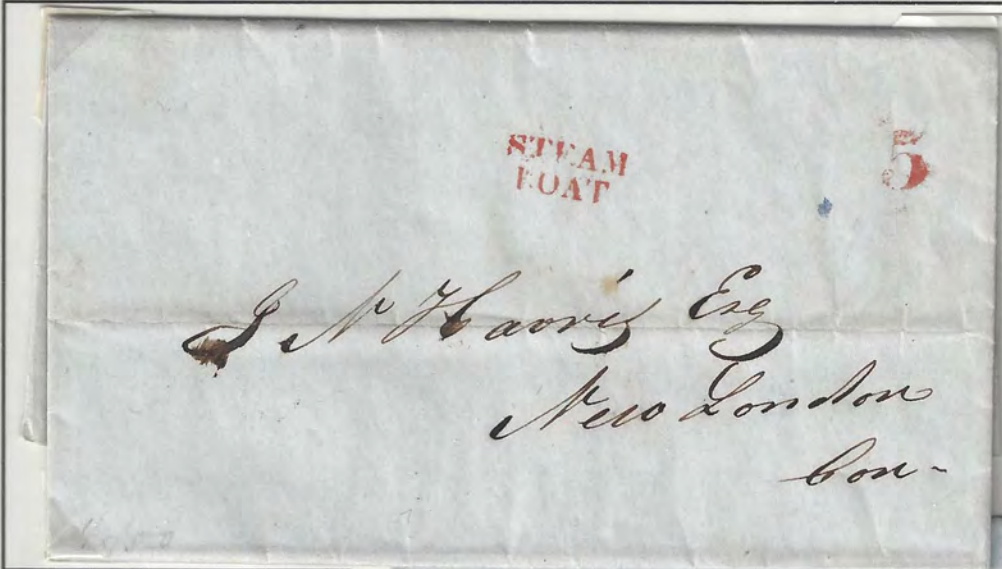 STEAM
BOAT
5
J N Harris Esq
New London
Con-